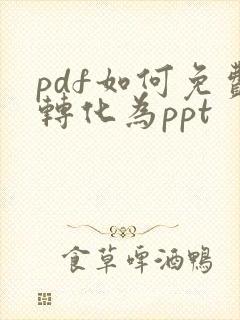 pdf如何免費
轉化為ppt
食草啤酒鴨